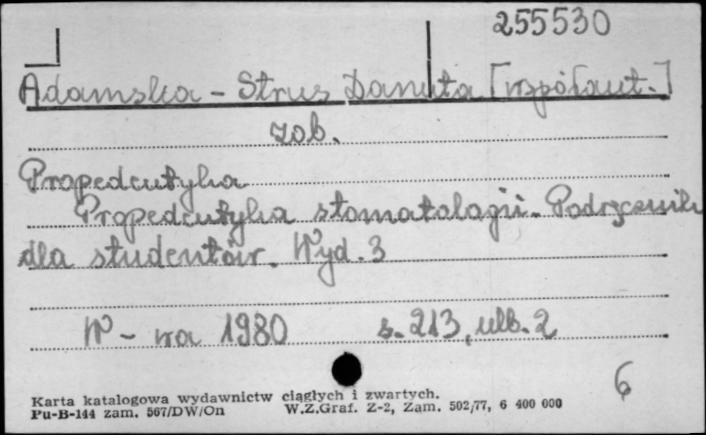 255530
Adamska - Strus Danuta [współaut.]
zob.
Propedeutyka
Propedeutyka stomatologii. Podręcznik
dla studentów. Wyd. 3
W - wa 1980 s. 213, nlb. 2
6
Karta katalogowa wydawnictw ciągłych i zwartych.
Pu-B-144 zam. 567/DW/On W.Z.Graf. Z-2, Zam. 502/77, 6 400 000